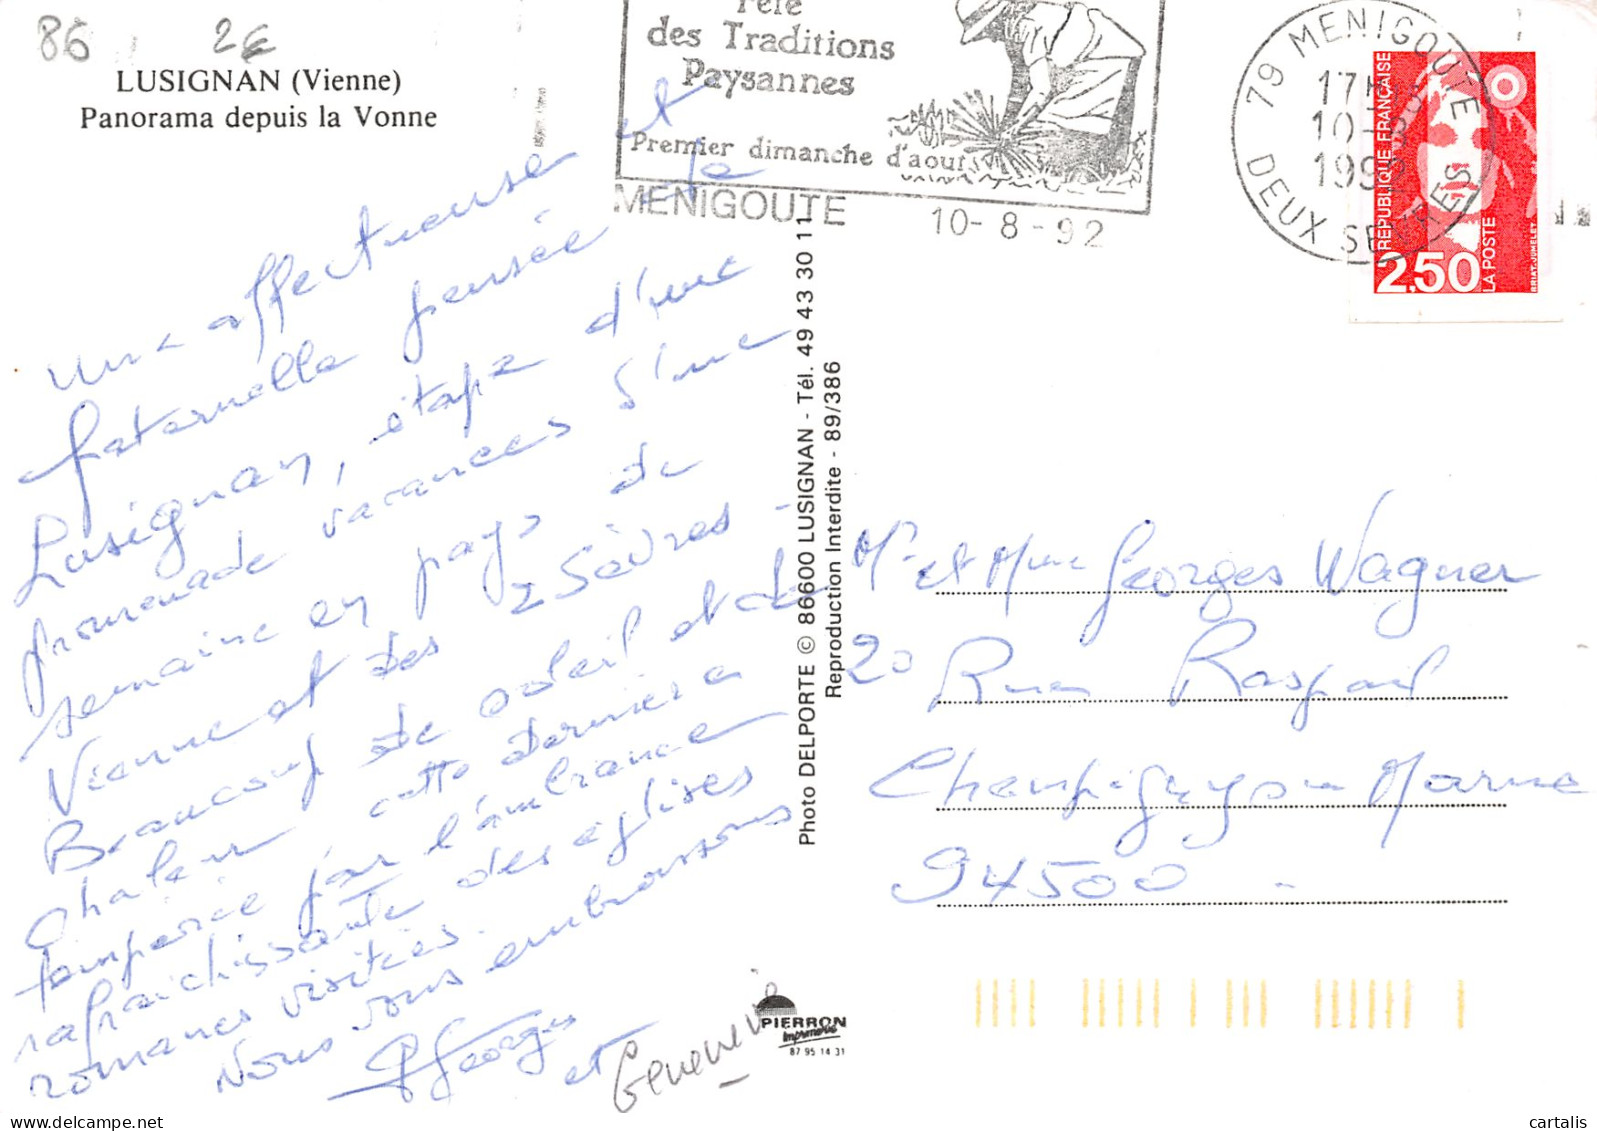 86 2€
LUSIGNAN (Vienne)
Panorama depuis la Vonne
Fête
des Traditions
Paysannes
Premier dimanche d'aout
MENIGOUTE 10-8-92
79 MENIGOUTE
17H
10-8
1992
DEUX SEVRES
REPUBLIQUE FRANÇAISE
2,50
LA POSTE
BRIAT.JUMELET
et
de
une affectueuse
fraternelle pensée
Lusignan, étape d'une
promenade vacances d'une
semaine en pays de
Vienne et des 2 Sèvres -
Beaucoup de soleil et de
chaleur cette dernière
tempérée par l'ambiance
rafraichissante des églises
romanes visitées.
Nous vous embrassons
Georges
et Geneviève
Photo DELPORTE © 86600 LUSIGNAN - Tél. 49 43 30 11
Reproduction Interdite - 89/386
Mr et Mme Georges Wagner
20 Rue Raspail
Champigny sur Marne
94500 -
PIERRON
Imprimerie
87 95 14 31
cartalis.com